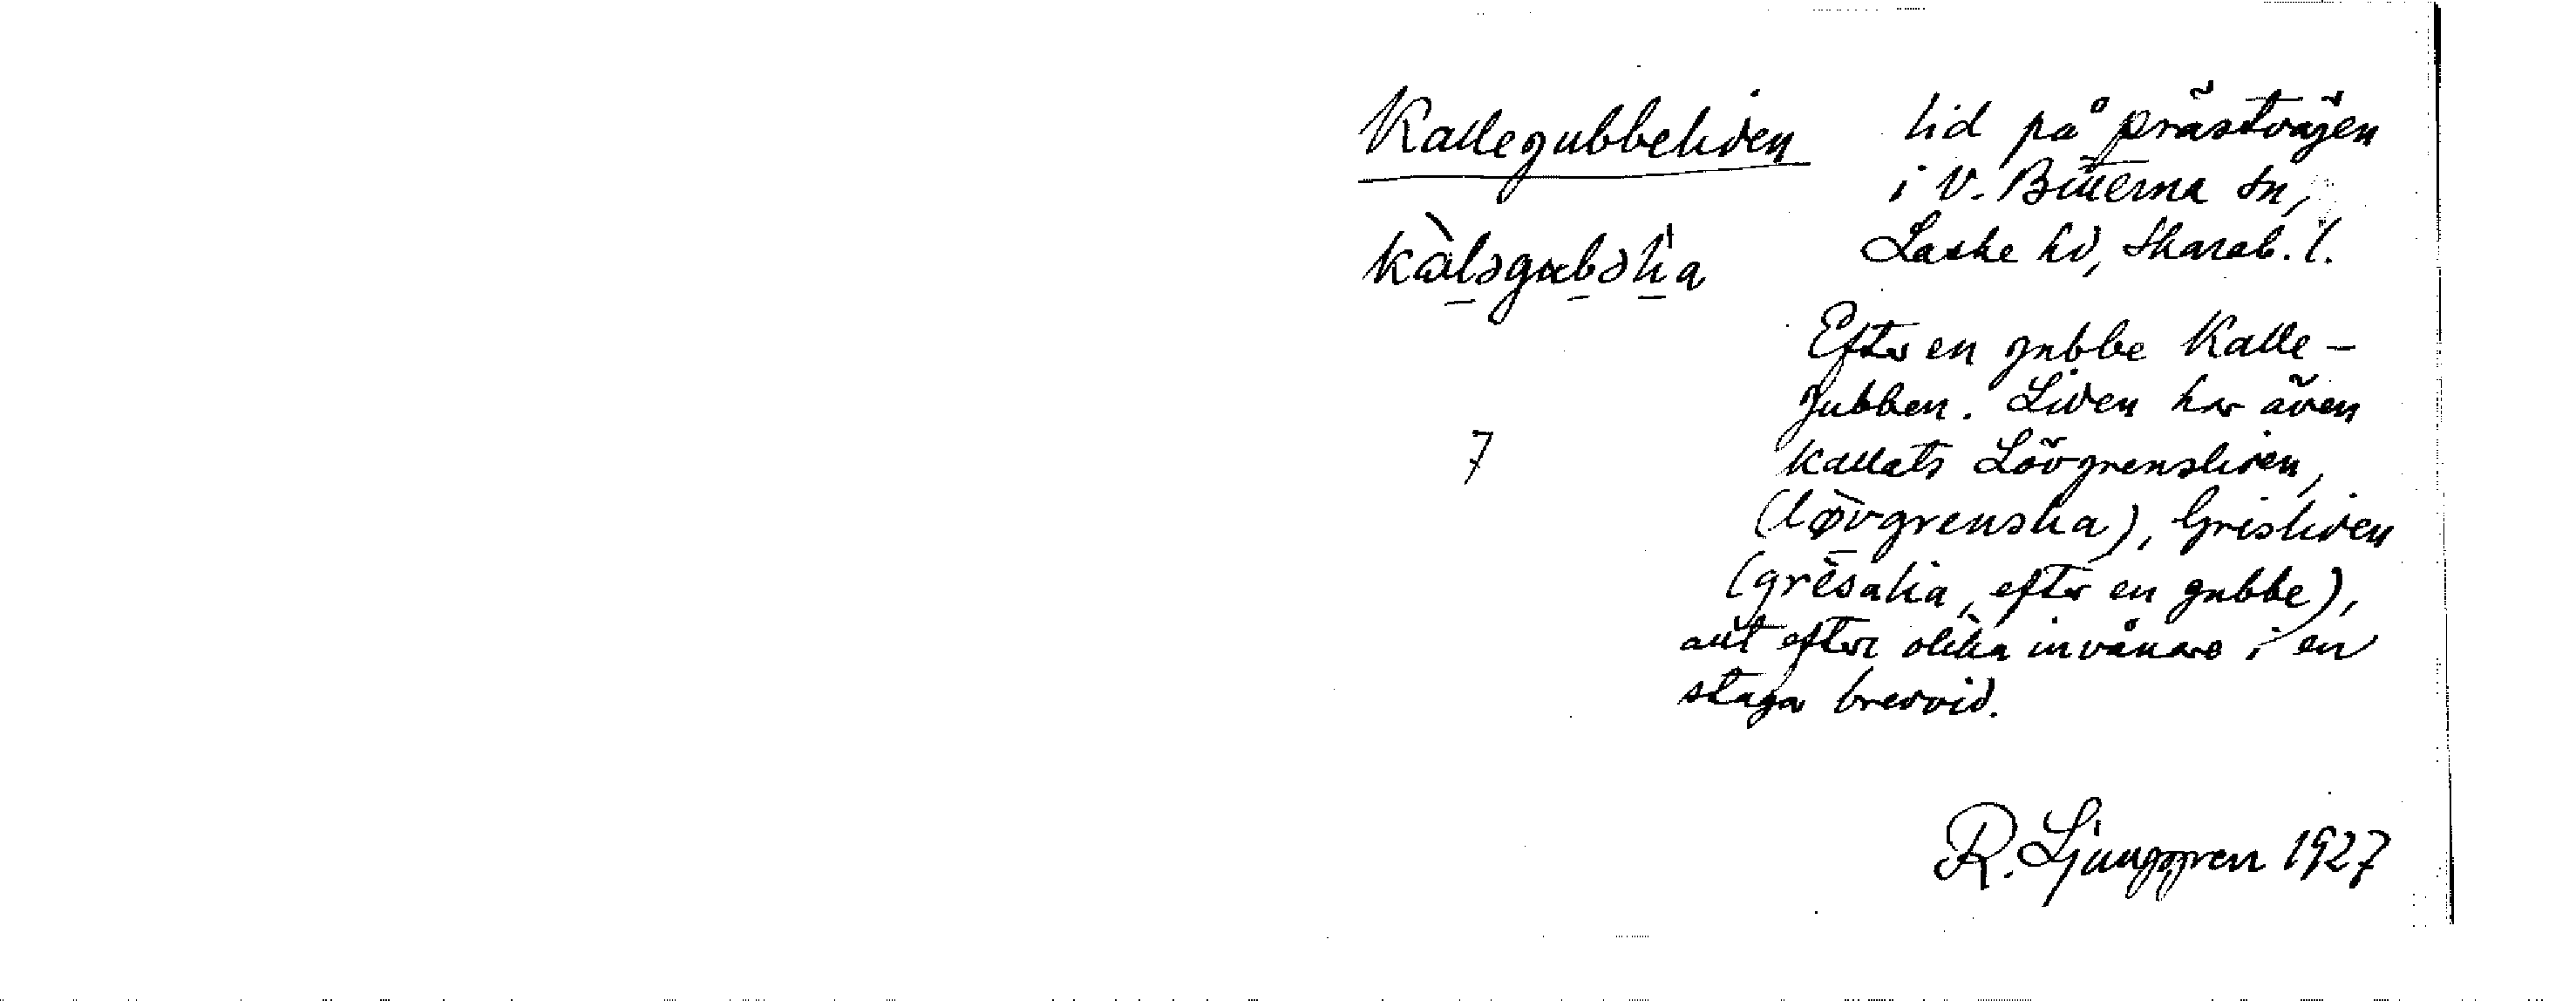 Kallegubbeliden
lid på prästvägen
i V. Bitterna sn,
Laske hd, Skarab. l.
kàləgubəlia
Efter en gubbe Kalle-
gubben. Liden har även
7
kallats Lövgrensliden,
(lövgrenslia), Grisliden
(grèsalia, efter en gubbe),
allt efter olika invånare i en
stuga bredvid.
R. Ljunggren 1927